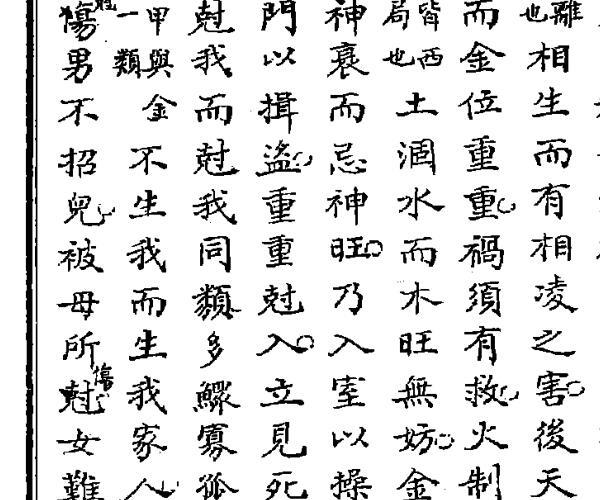 離也相生而有相凌之害後天
而金位重重禍須有救火制
皆西局也土涸水而木旺無妨金
神衰而忌神旺乃入室以操
門以揖盜重重尅入立見死
尅我而尅我同類多鰥寡孤
甲與金一類不生我而生我家人
傷男不招兒被母所尅傷女難